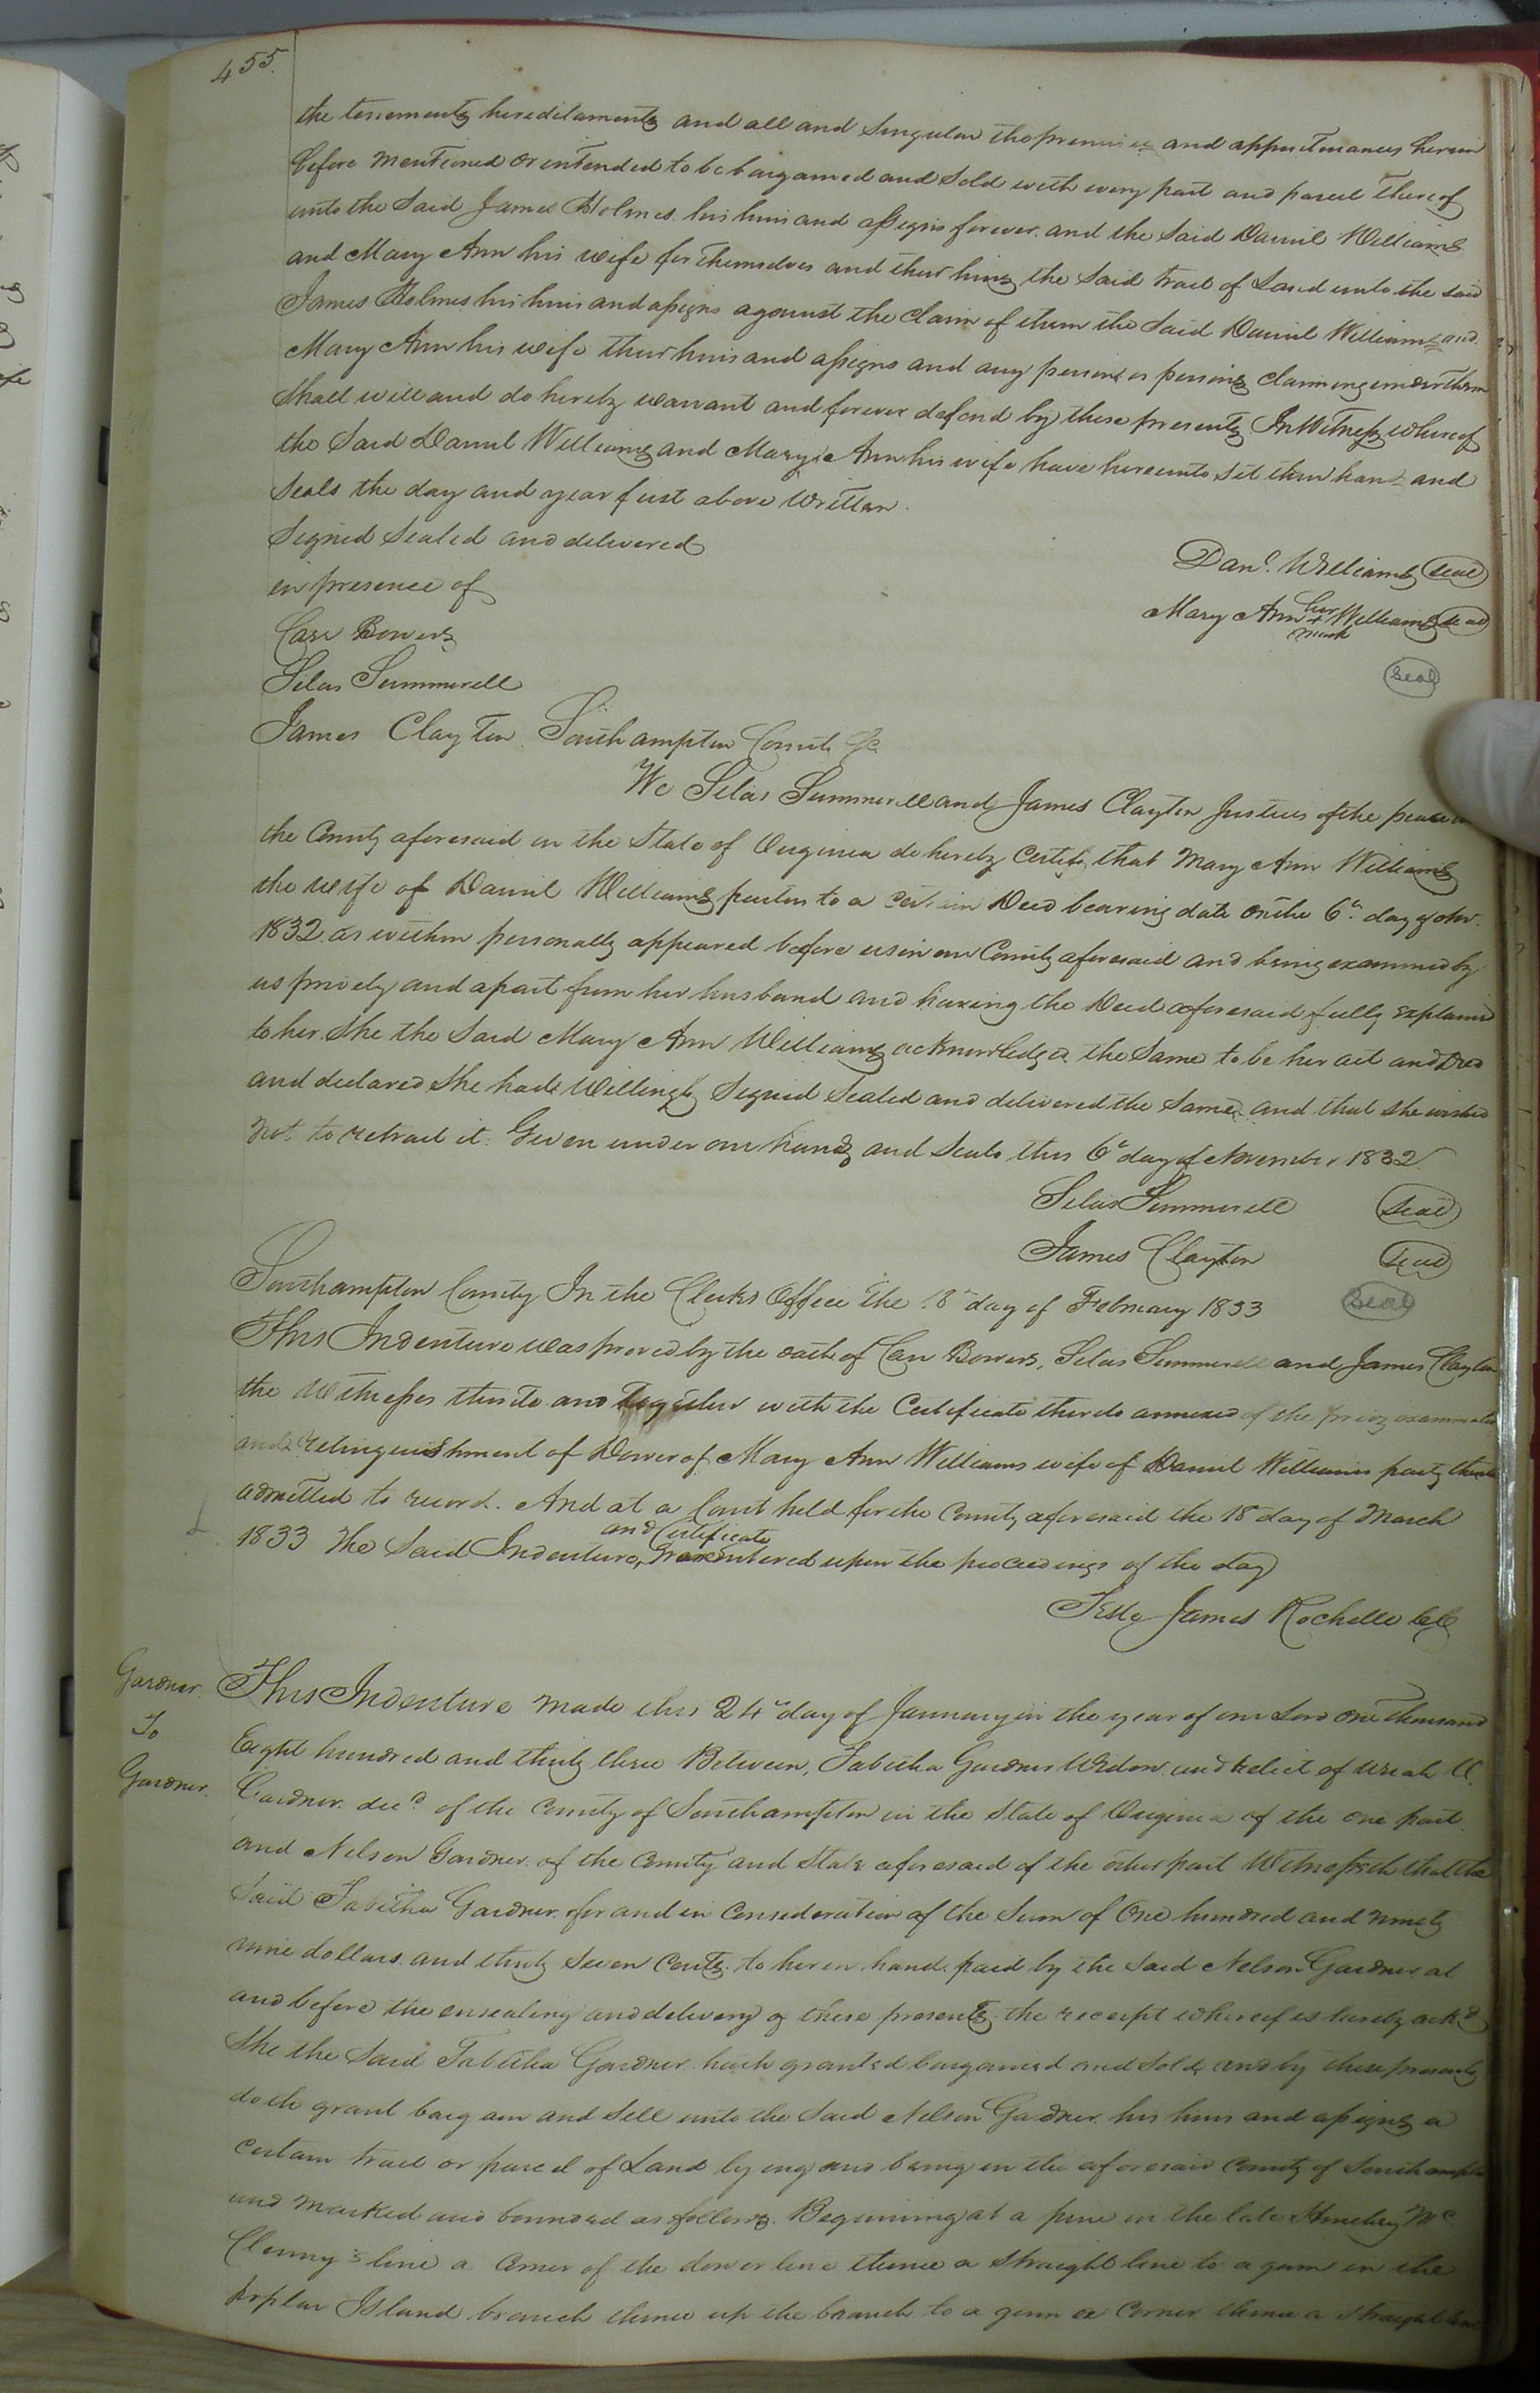 455.
the tenements hereditaments and all and Singular the premises and appurtenances herein
before mentioned or intended to be bargained and Sold with every part and parcel thereof
unto the Said James Holmes his heirs and assigns forever. and the Said Daniel Williams
and Mary Ann his wife for themselves and their heirs the Said tract of Land unto the said
James Holmes his heirs and assigns against the claim of them the Said Daniel Williams and
Mary Ann his wife their heirs and assigns and any person or persons claiming under them
Shall will and do hereby warrant and forever defend by these presents In Witness whereof
the Said Daniel Williams and Mary Ann his wife have hereunto Set their hands and
Seals the day and year first above written.
Signed Sealed and delivered
in presence of
Danl. Williams Seal
Carr Bowers
Mary Ann her + mark Williams Seal
Silas Summerell
Seal
James Clayton Southampton County Sc
We Silas Summerell and James Clayton Justices of the peace
the County aforesaid in the State of Virginia do hereby Certify that Mary Ann Williams
the wife of Daniel Williams parties to a certain Deed bearing date on the 6th day of Nov.
1832 as within personally appeared before us in our County aforesaid and being examined by
us privily and apart from her husband and having the Deed aforesaid fully explained
to her She the Said Mary Ann Williams acknowledged the Same to be her act and Deed
and declared She had Willingly Signed Sealed and delivered the Same and that She wished
not to retract it. Given under our hands and Seals this 6th day of November 1832
Silas Summerell Seal
James Clayton Seal
Southampton County In the Clerks Office the 18th day of February 1833 Seal
This Indenture was proved by the oath of Carr Bowers, Silas Summerell and James Clayton
the Witnesses thereto and together with the Certificate thereto annexed of the privy examination
and relinquishment of Dower of Mary Ann Williams wife of Daniel Williams party thereto
admitted to record. And at a Court held for the County aforesaid the 18 day of March
1833 The Said Indenture, and Certificate was entered upon the proceedings of the day
Teste James Rochelle CC
Gardner.
To
Gardner.
This Indenture made this 24th day of January in the year of our Lord one Thousand
Eight hundred and thirty three Between, Tabitha Gardner Widow and relict of Uriah
Gardner decd. of the County of Southampton in the State of Virginia of the one part
and Nelson Gardner of the County and State aforesaid of the other part Witnesseth that the
Said Tabitha Gardner for and in Consideration of the Sum of One hundred and ninety
nine dollars and thirty Seven Cents to her in hand paid by the Said Nelson Gardner at
and before the ensealing and delivery of these presents the receipt whereof is hereby ackd
She the Said Tabitha Gardner hath granted bargained and Sold and by these presents
doth grant bargain and Sell unto the Said Nelson Gardner his heirs and assigns a
certain tract or parcel of Land lying and being in the aforesaid County of Southampton
and marked and bounded as follows. Beginning at a pine in the late Mc.
Clenny's line a Corner of the dower line thence a Straight line to a gum in the
Poplar Island branch thence up the branch to a gum a Corner thence a straight line